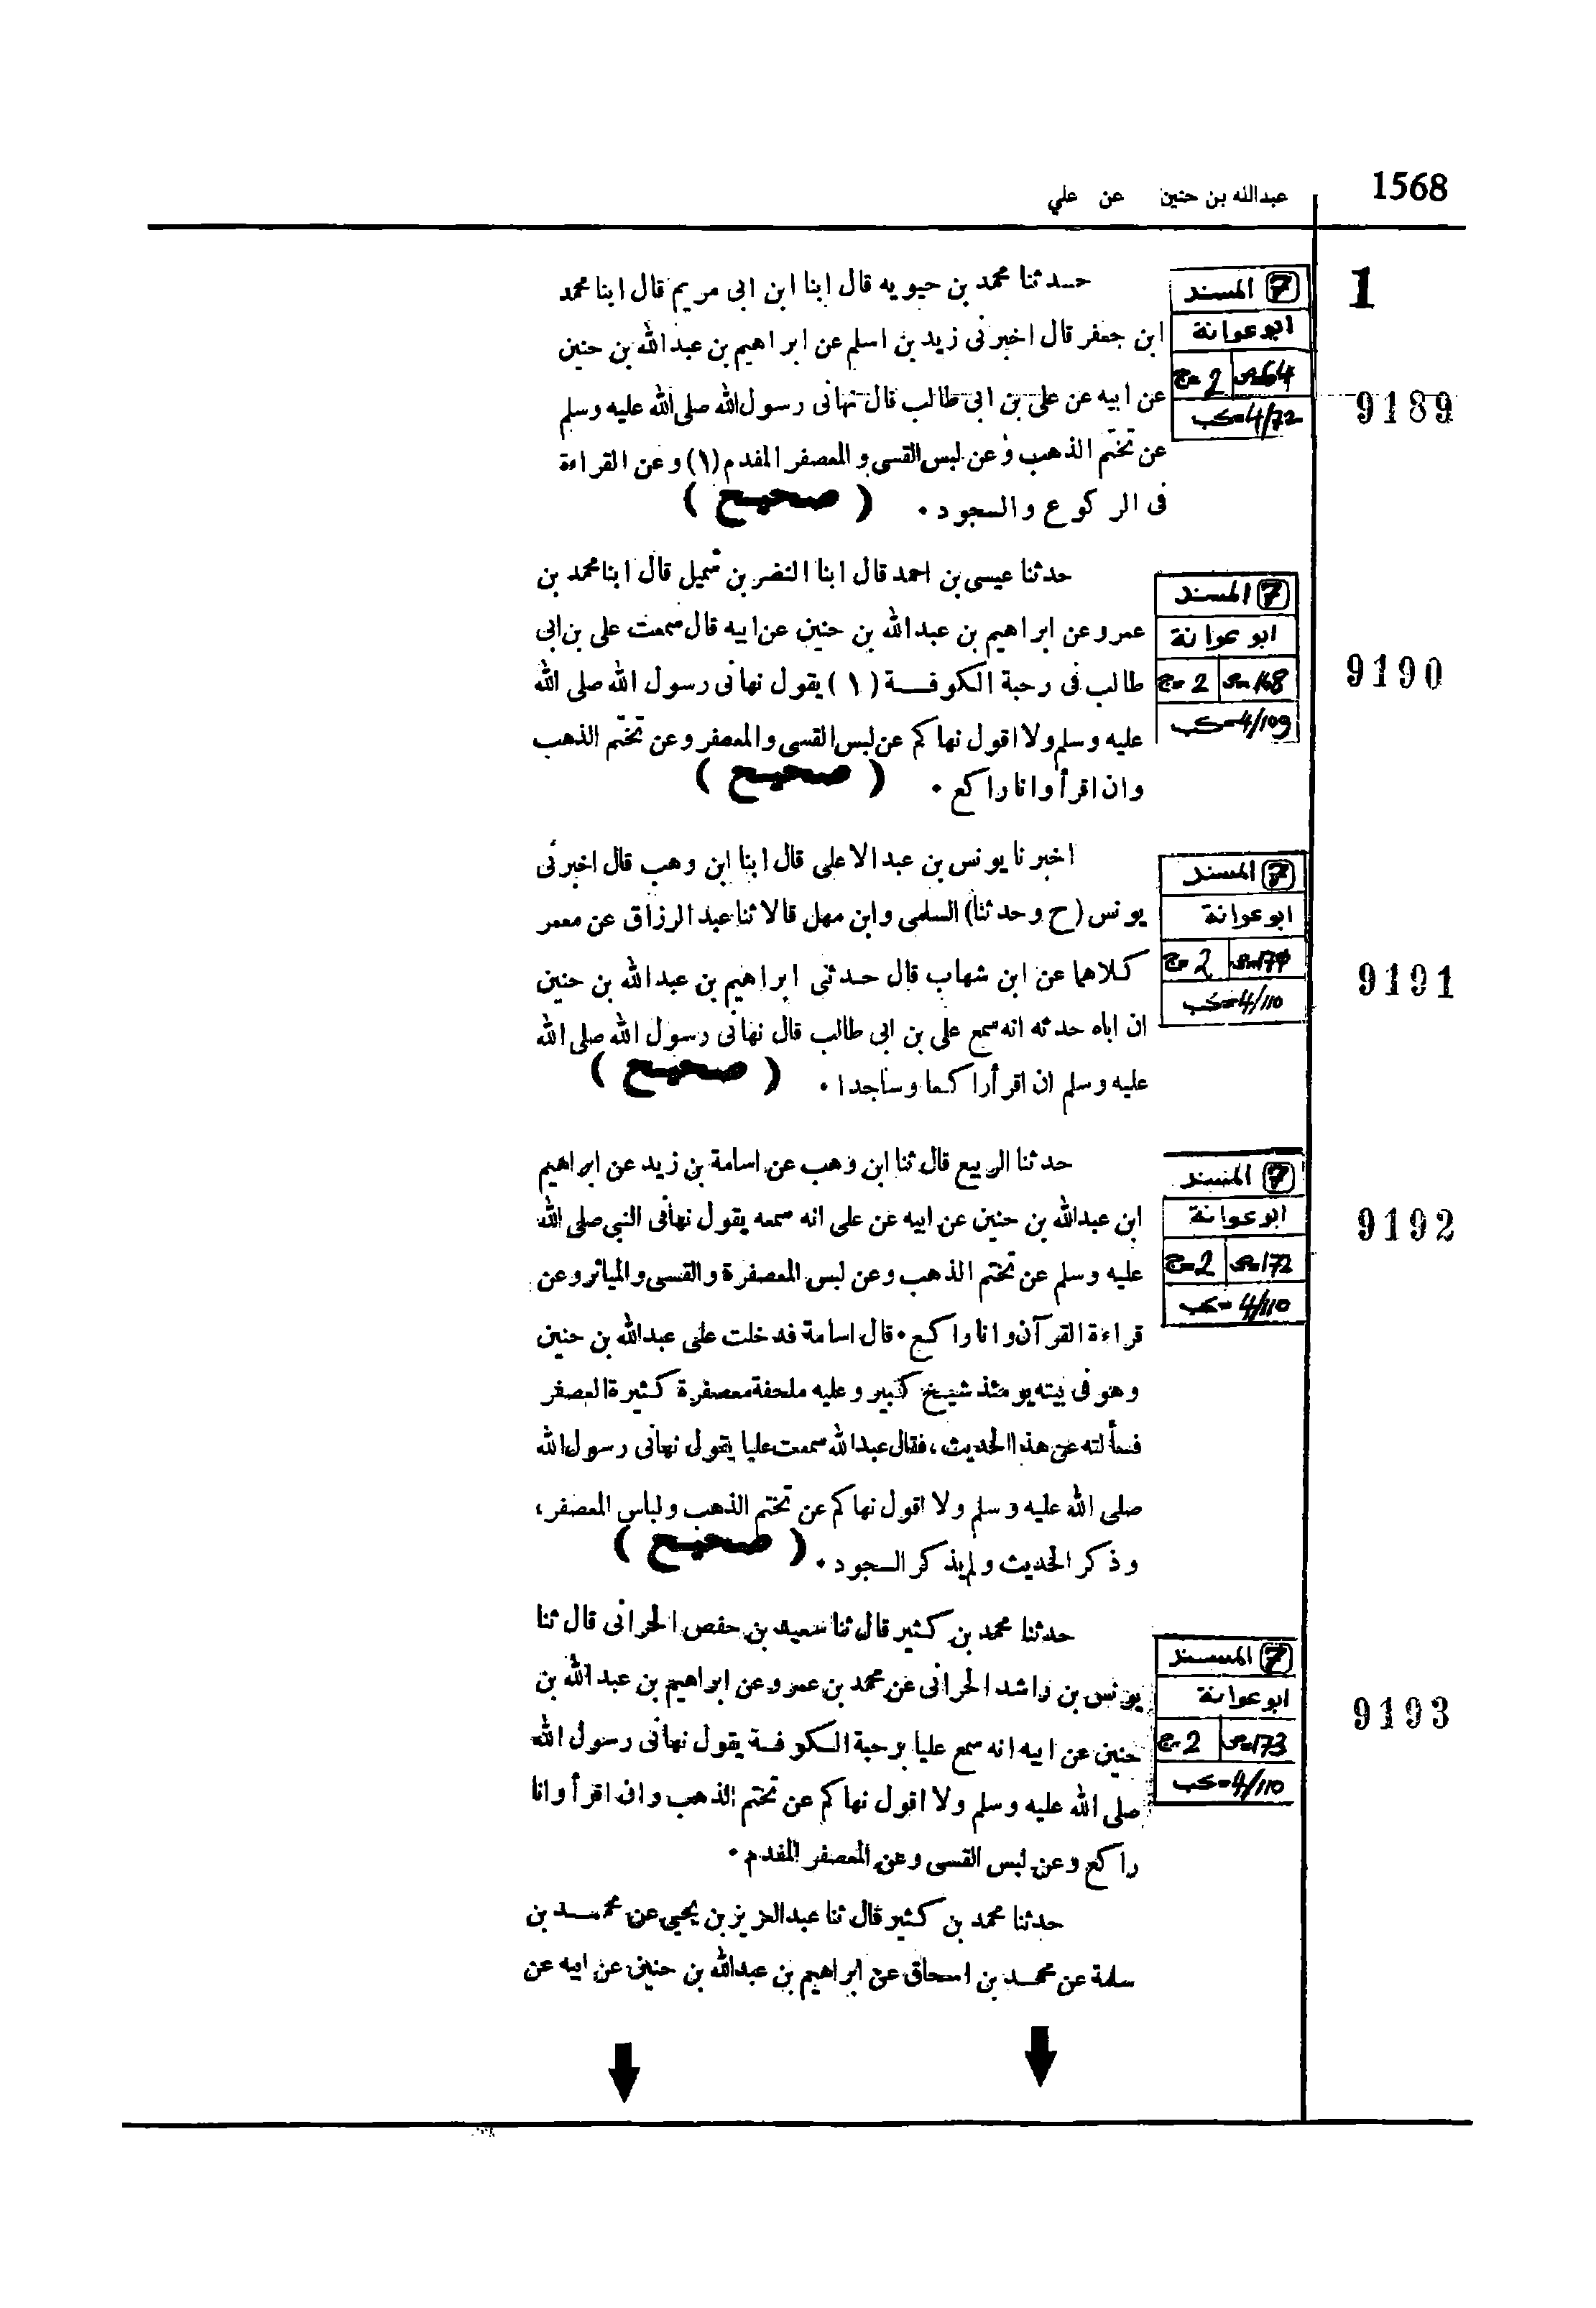 1568
عبدالله بن حنين عن علي
1
7 المسند
ابو عوانة
ج=2
كب=4/72
9189
حدثنا محمد بن حيويه قال ابنا ابن ابى مريم قال ابنا محمد
ابن جعفر قال اخبرنى زيد بن اسلم عن ابراهيم بن عبد الله بن حنين
عن ابيه عن على بن ابى طالب قال نهانى رسول الله صلى الله عليه وسلم
عن تختم الذهب وعن لبس القسى والمعصفر المفدم (١) وعن القراءة
فى الركوع والسجود . (صحيح)
7 المسند
ابو عوانة
ج=2 ص=168
كب=4/109
9190
حدثنا عيسى بن احمد قال ابنا النضر بن شميل قال ابنا محمد بن
عمرو عن ابراهيم بن عبد الله بن حنين عن ابيه قال سمعت على بن ابى
طالب فى رحبة الكوفــة (١) يقول نهانى رسول الله صلى الله
عليه وسلم ولا اقول نهاكم عن لبس القسى والمعصفر وعن تختّم الذهب
وان اقرأ وانا راكع . (صحيح)
7 المسند
ابو عوانة
ج=2
كب=4/110
9191
اخبرنا يونس بن عبد الاعلى قال ابنا ابن وهب قال اخبرنى
يونس (ح وحدثنا) السلمى وابن مهل قالا ثنا عبد الرزاق عن معمر
كلاهما عن ابن شهاب قال حدثنى ابراهيم بن عبد الله بن حنين
ان اباه حدثه انه سمع على بن ابى طالب قال نهانى رسول الله صلى الله
عليه وسلم ان اقرأ راكعا وساجدا . (صحيح)
7 المسند
ابو عوانة
ج=2 ص=172
كب=4/110
9192
حدثنا الربيع قال ثنا ابن وهب عن اسامة بن زيد عن ابراهيم
ابن عبدالله بن حنين عن ابيه عن على انه سمعه يقول نهانى النبى صلى الله
عليه وسلم عن تختم الذهب وعن لبس المعصفرة والقسى والمياثر وعن
قراءة القرآن وانا راكع . قال اسامة فدخلت على عبدالله بن حنين
وهو فى بيته يومئذ شيخ كبير وعليه ملحفة معصفرة كثيرة العصفر
فسألته عن هذا الحديث ، فقال عبد الله سمعت عليا يقول نهانى رسول الله
صلى الله عليه وسلم ولا اقول نهاكم عن تختم الذهب ولباس المعصفر ،
وذكر الحديث ولم يذكر السجود . (صحيح)
7 المسند
ابو عوانة
ج=2 ص=173
كب=4/110
9193
حدثنا محمد بن كثير قال ثنا سعيد بن حفص الحرانى قال ثنا
يونس بن راشد الحرانى عن محمد بن عمرو عن ابراهيم بن عبد الله بن
حنين عن ابيه انه سمع عليا برحبة الكوفة يقول نهانى رسول الله
صلى الله عليه وسلم ولا اقول نهاكم عن تختم الذهب وان اقرأ وانا
راكع وعن لبس القسى وعن المعصفر المفدم .
حدثنا محمد بن كثير قال ثنا عبد العزيز بن يحيى عن محمــد بن
سلمة عن محمــد بن اسحاق عن ابراهيم بن عبدالله بن حنين عن ابيه عن